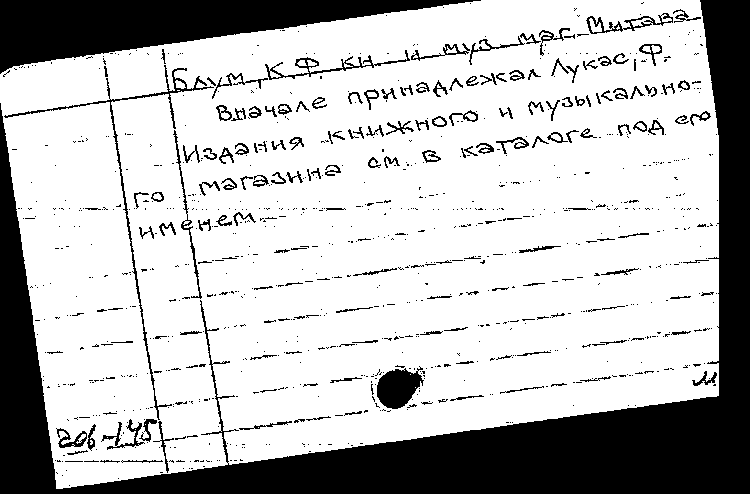 Блум, К.Ф. кн. и муз. маг. Митава
Вначале принадлежал Лукас, Ф.
Издания книжного и музыкально-
го магазина см. в каталоге под его
именем.
206-145
м